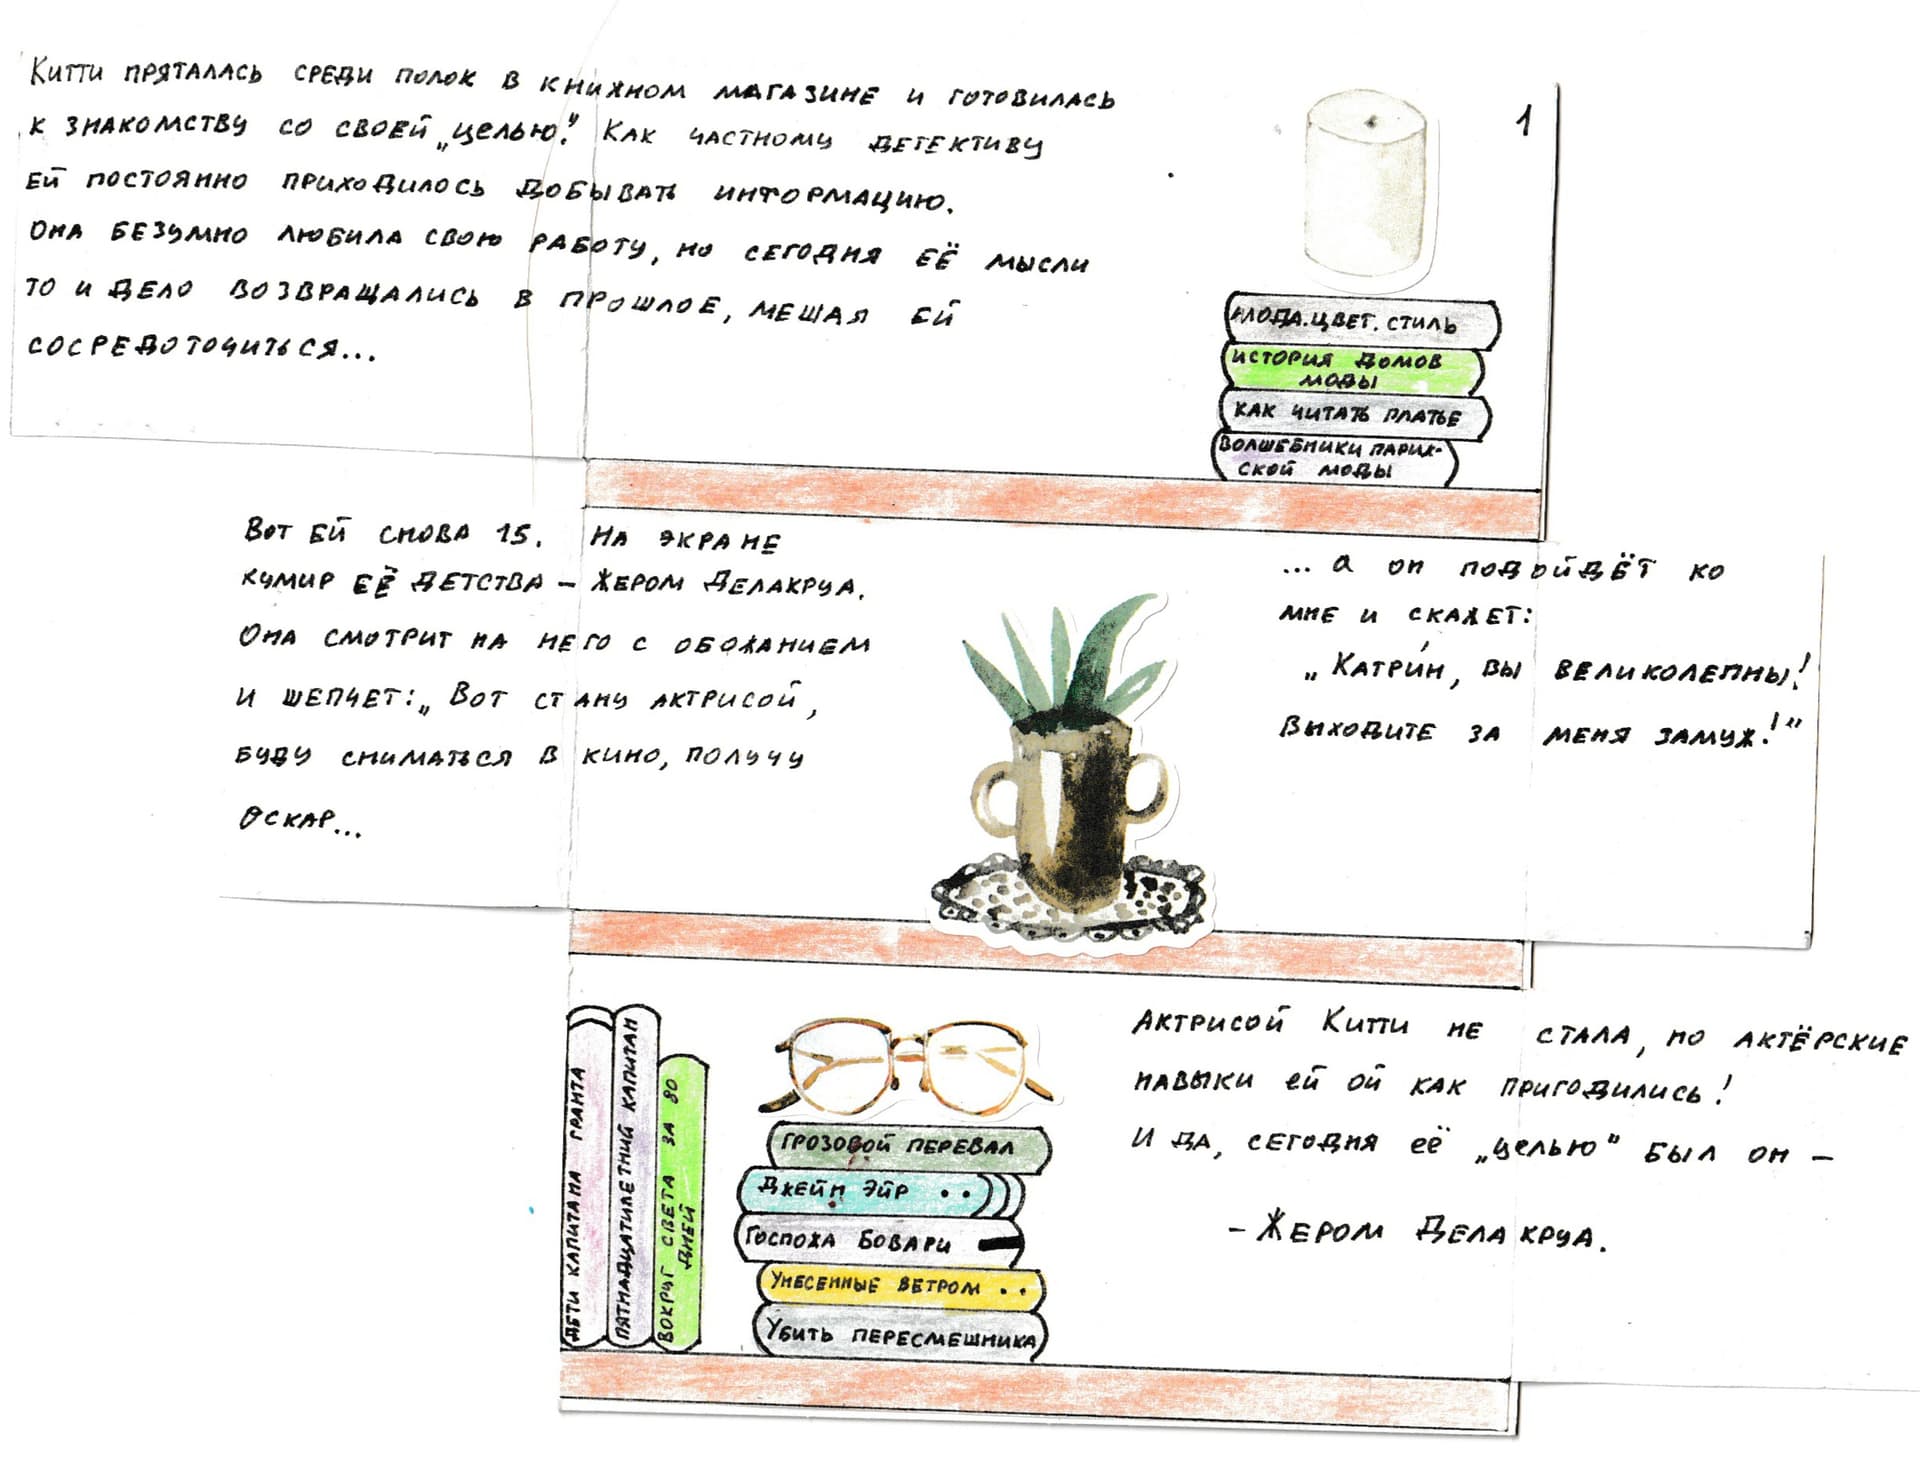 Китти пряталась среди полок в книжном магазине и готовилась
к знакомству со своей „целью". Как частному детективу
ей постоянно приходилось добывать информацию.
Она безумно любила свою работу, но сегодня её мысли
то и дело возвращались в прошлое, мешая ей
сосредоточиться...
1
МОДА. ЦВЕТ. СТИЛЬ
ИСТОРИЯ ДОМОВ
МОДЫ
КАК ЧИТАТЬ ПЛАТЬЕ
ВОЛШЕБНИКИ ПАРИЖ-
СКОЙ МОДЫ
Вот ей снова 15. На экране
кумир её детства – Жером Делакруа.
Она смотрит на него с обожанием
и шепчет: „Вот стану актрисой,
буду сниматься в кино, получу
Оскар...
... а он подойдёт ко
мне и скажет:
„Катри́н, вы великолепны!
Выходите за меня замуж!"
ДЕТИ КАПИТАНА ГРАНТА
ПЯТНАДЦАТИЛЕТНИЙ КАПИТАН
ВОКРУГ СВЕТА ЗА 80
ДНЕЙ
ГРОЗОВОЙ ПЕРЕВАЛ
ДЖЕЙН ЭЙР
ГОСПОЖА БОВАРИ
УНЕСЕННЫЕ ВЕТРОМ
УБИТЬ ПЕРЕСМЕШНИКА
Актрисой Китти не стала, но актёрские
навыки ей ой как пригодились!
И да, сегодня её „целью" был он –
– Жером Делакруа.